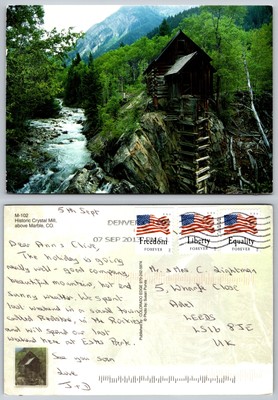 M-102
Historic Crystal Mill,
above Marble, CO.
5th Sept
DENVER
07 SEP 2013
Freedom
Liberty
Equality
Dear Ann & Clive,
The holiday is going
really well - good company,
beautiful mountains, hot and
sunny weather. We spent
last weekend in a small town
called Redstone, in the Rockies
and will spend our last
weekend here at Estes Park.
See you soon
Love
J & D
Mr & Mrs C. Rightman
5, Wharfe Close
Adel
LEEDS
LS16 8JE
UK